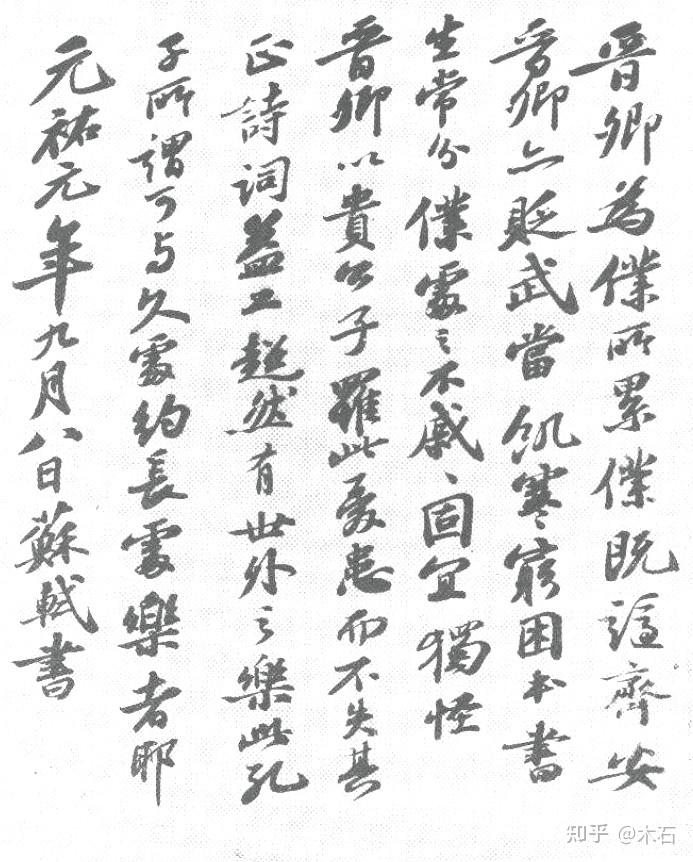 晉卿為僕所累僕既謫齊安
晉卿亦貶武當飢寒窮困本書
生常分僕處之不戚戚固宜獨怪
晉卿以貴公子罹此憂患而不失其
正詩詞益工超然有世外之樂此孔
子所謂可与久處約長處樂者耶
元祐元年九月八日蘇軾書
知乎 @木石